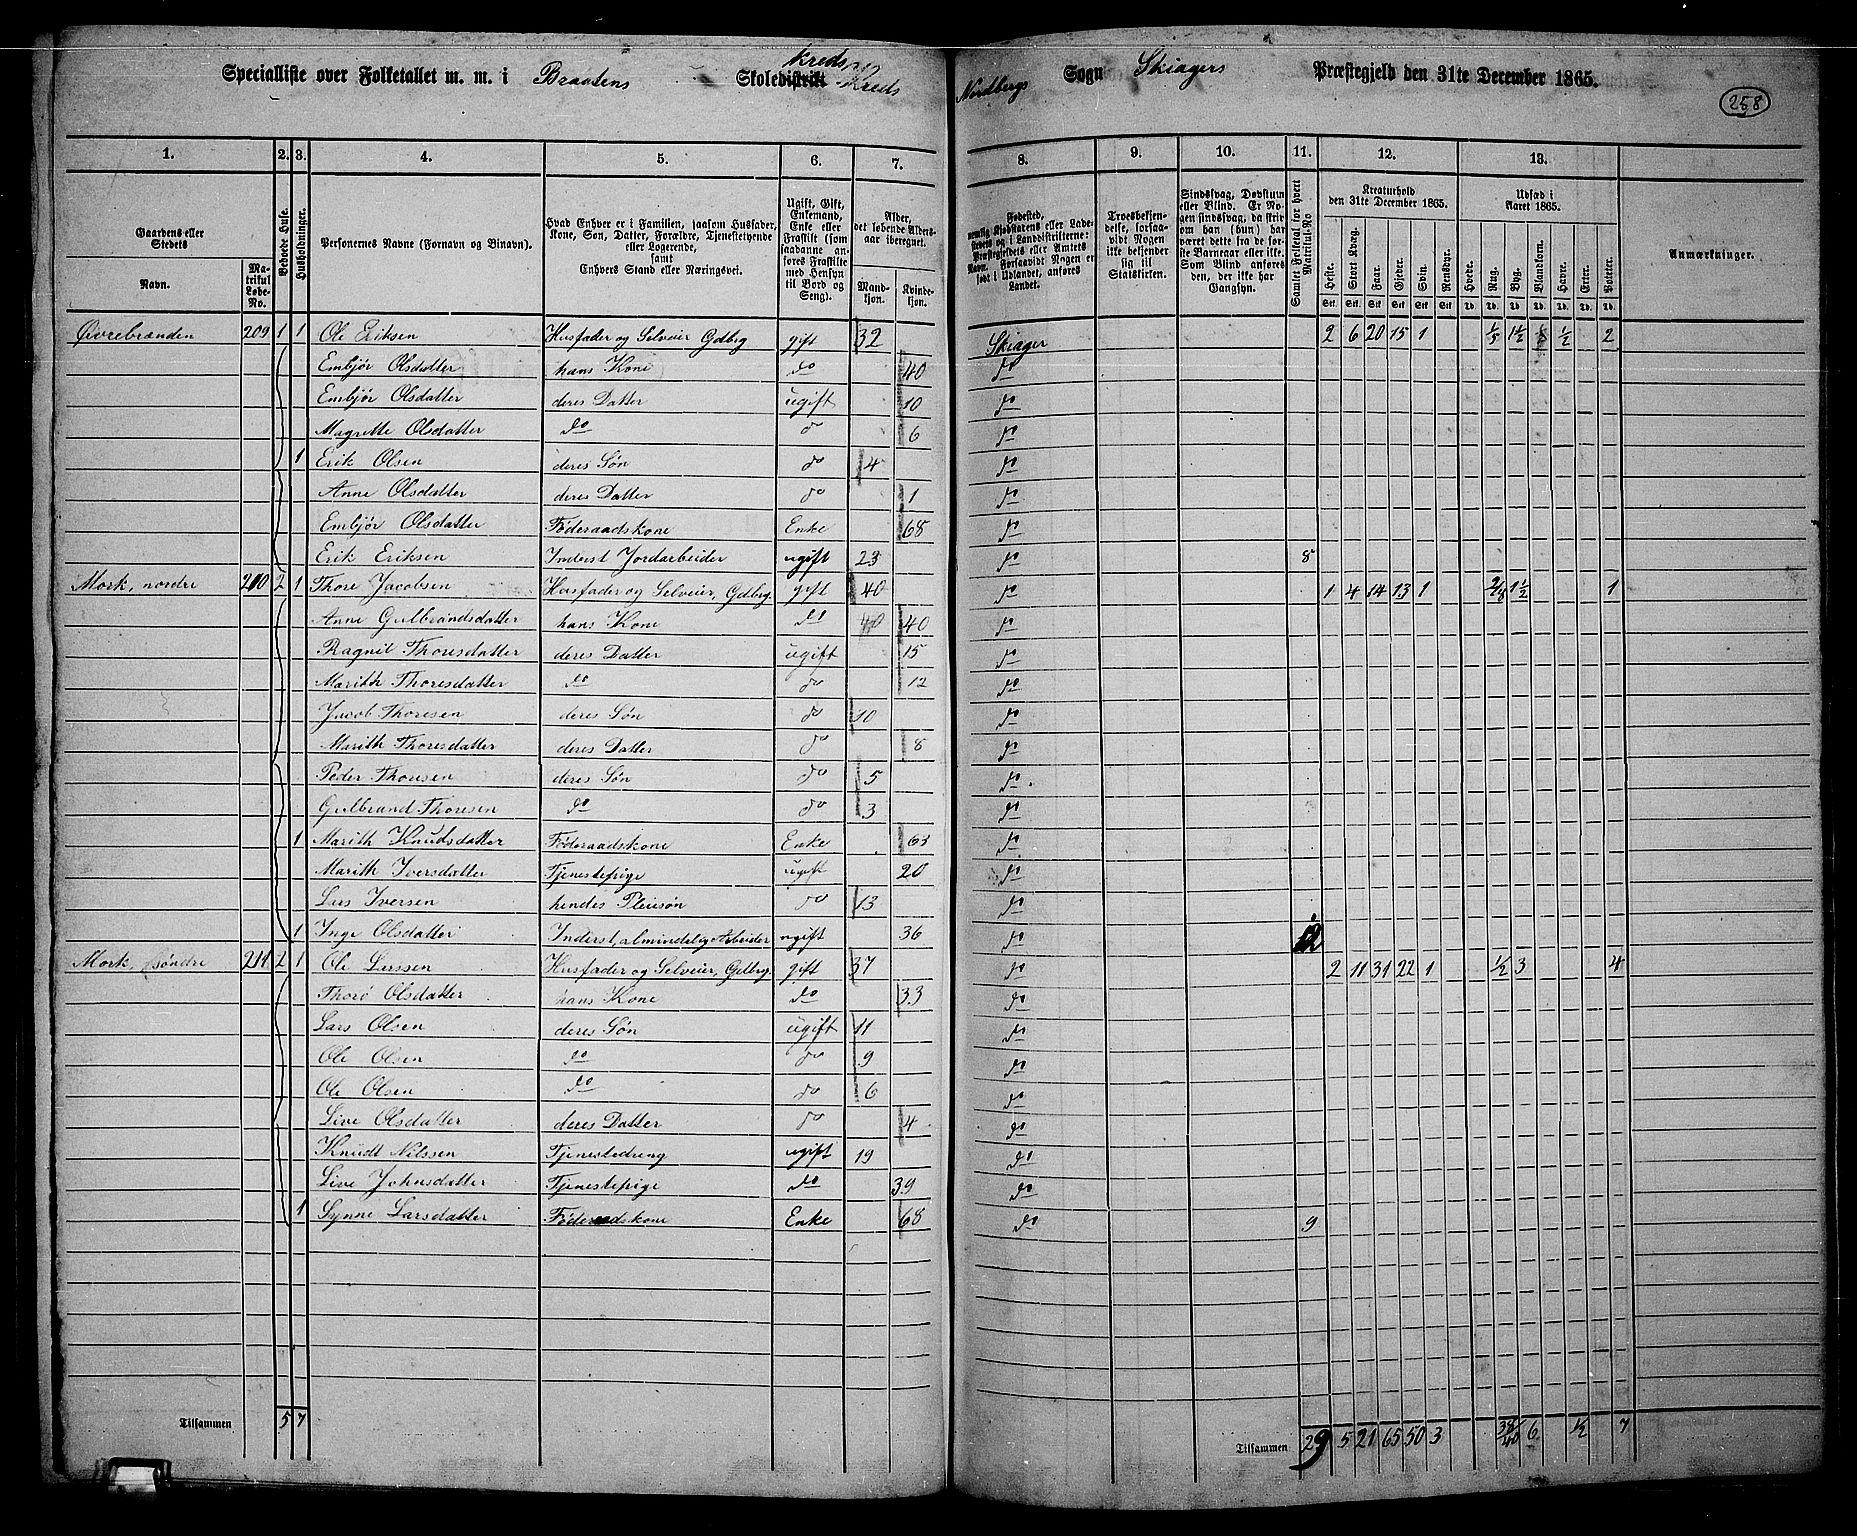 Specialliste over Folketallet m. m. i Braatens Skoledistrikt Kreds Kreds Nordbergs Sogn Skiagers Præstegjeld den 31te December 1865.
258
1. 2. 3. 4. 5. 6. 7. 8. 9. 10. 11. 12. 13.
Gaardens eller Stedets
Navn.
Matrikul Løbe-No.
Beboede Huse.
Husholdninger.
Personernes Navne (Fornavn og Binavn).
Hvad Enhver er i Familien, saasom Husfader, Kone, Søn, Datter, Forældre, Tjenestetyende eller Logerende, samt Enhvers Stand eller Næringsvei.
Ugift, Gift, Enkemand, Enke eller Fraskilt (som saadanne anføres Fraskilte med Hensyn til Bord og Seng).
Alder, det løbende Alders-aar iberegnet.
Mandkjøn.
Kvindekjøn.
Fødested, nemlig Kjøbstadens eller Ladestedets og i Landdistrikterne: Præstegjeldets eller Amtets Navn. Forsaavidt Nogen er født i Udlandet, anføres Landet.
Troesbekjendelse, forsaavidt Nogen ikke bekjender sig til Statskirken.
Sindssvag, Døvstum eller Blind. Er Nogen sindssvag, da skrives om han (hun) har været dette fra de første Barneaar eller ikke. Som Blind anføres den, der ikke har Gangsyn.
Samlet Folketal for hvert Matrikul-No
Kreaturhold den 31te December 1865.
Heste. Stort Kvæg. Faar. Gjeder. Svin. Rensdyr.
Udsæd i Aaret 1865.
Hvede. Rug. Byg. Blandkorn. Havre. Erter. Poteter.
Anmærkninger.
Øvrebrænden 209 1 1 Ole Eriksen Husfader og Selveier Gdbrg gift 32 Skiager 2 6 20 15 1 1/5 1½ ½ 2
Embjør Olsdatter hans Kone do 40 do
Embjør Olsdatter deres Datter ugift 10 do
Magrette Olsdatter do do 6 do
1 Erik Olsen deres Søn do 4 do
Anne Olsdatter deres Datter do 1 do
Embjør Olsdatter Føderaadskone Enke 68 do
Erik Eriksen Inderst Jordarbeider ugift 23 do 8
Mork, nordre 210 2 1 Thore Jacobsen Husfader og Selveier, Gdbrg. gift 40 do 1 4 14 13 1 2/8 1½ 1
Anne Gulbrandsdatter hans Kone do 40 40 do
Ragnil Thoresdatter deres Datter ugift 15 do
Marith Thoresdatter do do 12 do
Jacob Thoresen deres Søn do 10 do
Marith Thoresdatter deres Datter do 8 do
Peder Thoresen deres Søn do 5 do
Gulbrand Thoresen do do 3 do
1 Marith Knudsdatter Føderaadskone Enke 63 do
Marith Iversdatter Tjenestepige ugift 20 do
Lars Iversen hendes Pleiesøn do 13 do
1 Inge Olsdatter Inderst, almindelig Arbeider ugift 36 do 12
Mork, søndre 211 2 1 Ole Larssen Husfader og Selveier, Gdbrg. gift 37 do 2 11 31 22 1 ½ 3 4
Thorø Olsdatter hans Kone do 33 do
Lars Olsen deres Søn ugift 11 do
Ole Olsen do do 9 do
Ole Olsen do do 6 do
Live Olsdatter deres Datter do 4 do
Knudt Nilssen Tjenestedreng ugift 19 do
Live Johnsdatter Tjenestepige do 39 do
1 Synne Larsdatter Føderaadskone Enke 68 do 9
Tilsammen 5 7
Tilsammen 29 5 21 65 50 3 38/40 6 ½ 7